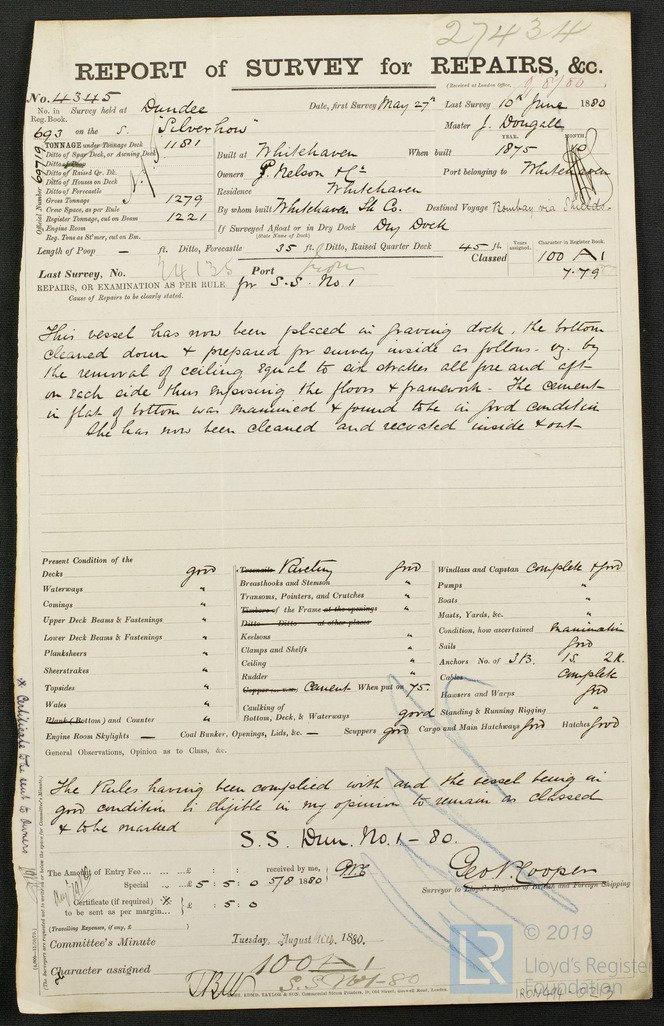 27434
REPORT of SURVEY for REPAIRS, &c.
(Received at London Office, 9/8/80)
No. 4345
No. in Reg. Book. Survey held at Dundee Date, first Survey May 27th Last Survey 10th June 1880
693 on the S. "Silverhow" Master J. Dougall
TONNAGE under Tonnage Deck 1181
Ditto of Spar Deck, or Awning Deck
Ditto
Ditto of Raised Qr. Dk.
Ditto of Houses on Deck
Ditto of Forecastle
Gross Tonnage 1279
Crew Space, as per Rule
Register Tonnage, cut on Beam 1221
Engine Room
Reg. Tons as St'mer, cut on Bm.
Official Number 69719
Built at Whitehaven When built YEAR. 1875 MONTH. 10
Owners P. Nelson & Co Port belonging to Whitehaven
Residence Whitehaven
By whom built Whitehaven Sh Co. Destined Voyage Bombay via Shields.
If Surveyed Afloat or in Dry Dock Dry Dock
(State Name of Dock)
Length of Poop — ft. Ditto, Forecastle 35 ft. Ditto, Raised Quarter Deck 45 ft.
Years assigned. Character in Register Book.
Classed 100 A 1
7.79
Last Survey, No. 24138 Port
REPAIRS, OR EXAMINATION AS PER RULE for S.S. No 1
Cause of Repairs to be clearly stated.
This vessel has now been placed in graving dock, the bottom
cleaned down & prepared for survey inside as follows. vz. by
the removal of ceiling equal to six strakes all fore and aft
on each side thus exposing the floors & framework. The cement
in flat of bottom was examined & found to be in good condition
She has now been cleaned and recoated inside & out
Present Condition of the
Decks good
Waterways "
Comings "
Upper Deck Beams & Fastenings "
Lower Deck Beams & Fastenings "
Planksheers "
Sheerstrakes "
Topsides "
Wales "
Plank (Bottom) and Counter "
Engine Room Skylights —
Treenails Riveting good
Breasthooks and Stemson "
Transoms, Pointers, and Crutches "
Timbers of the Frame at the openings "
Ditto Ditto at other places
Keelsons "
Clamps and Shelfs "
Ceiling "
Rudder "
Copper Cement When put on 75.
Caulking of Bottom, Deck, & Waterways good
Coal Bunker, Openings, Lids, &c. — Scuppers good
Windlass and Capstan Complete & good
Pumps "
Boats "
Masts, Yards, &c. "
Condition, how ascertained Examination
Sails good
Anchors No. of 3B. 1S. 2K.
Cables complete
Hawsers and Warps good
Standing & Running Rigging "
Cargo and Main Hatchways good Hatches good
General Observations, Opinion as to Class, &c.
The Rules having been complied with and the vessel being in
good condition is eligible in my opinion to remain as classed
& to be marked
S.S. Dun. No. 1 - 80.
The Amount of Entry Fee ... £ : : received by me,
Special ... £ 5 : 5 : 0 5/8 1880
Certificate (if required) * : 5 : 0
to be sent as per margin...
(Travelling Expenses, if any, £ )
Geo. P. Cooper
Surveyor to Lloyd's Register of British and Foreign Shipping
Committee's Minute Tuesday, August 10th, 1880.
Character assigned 100 A 1
S.S. No 1-80
* Certificate to be sent to Owners
(The Surveyors are requested not to write on or below the space for Committee's Minute.)
© 2019
LR
Lloyd's Register
Foundation
IRON494-0213